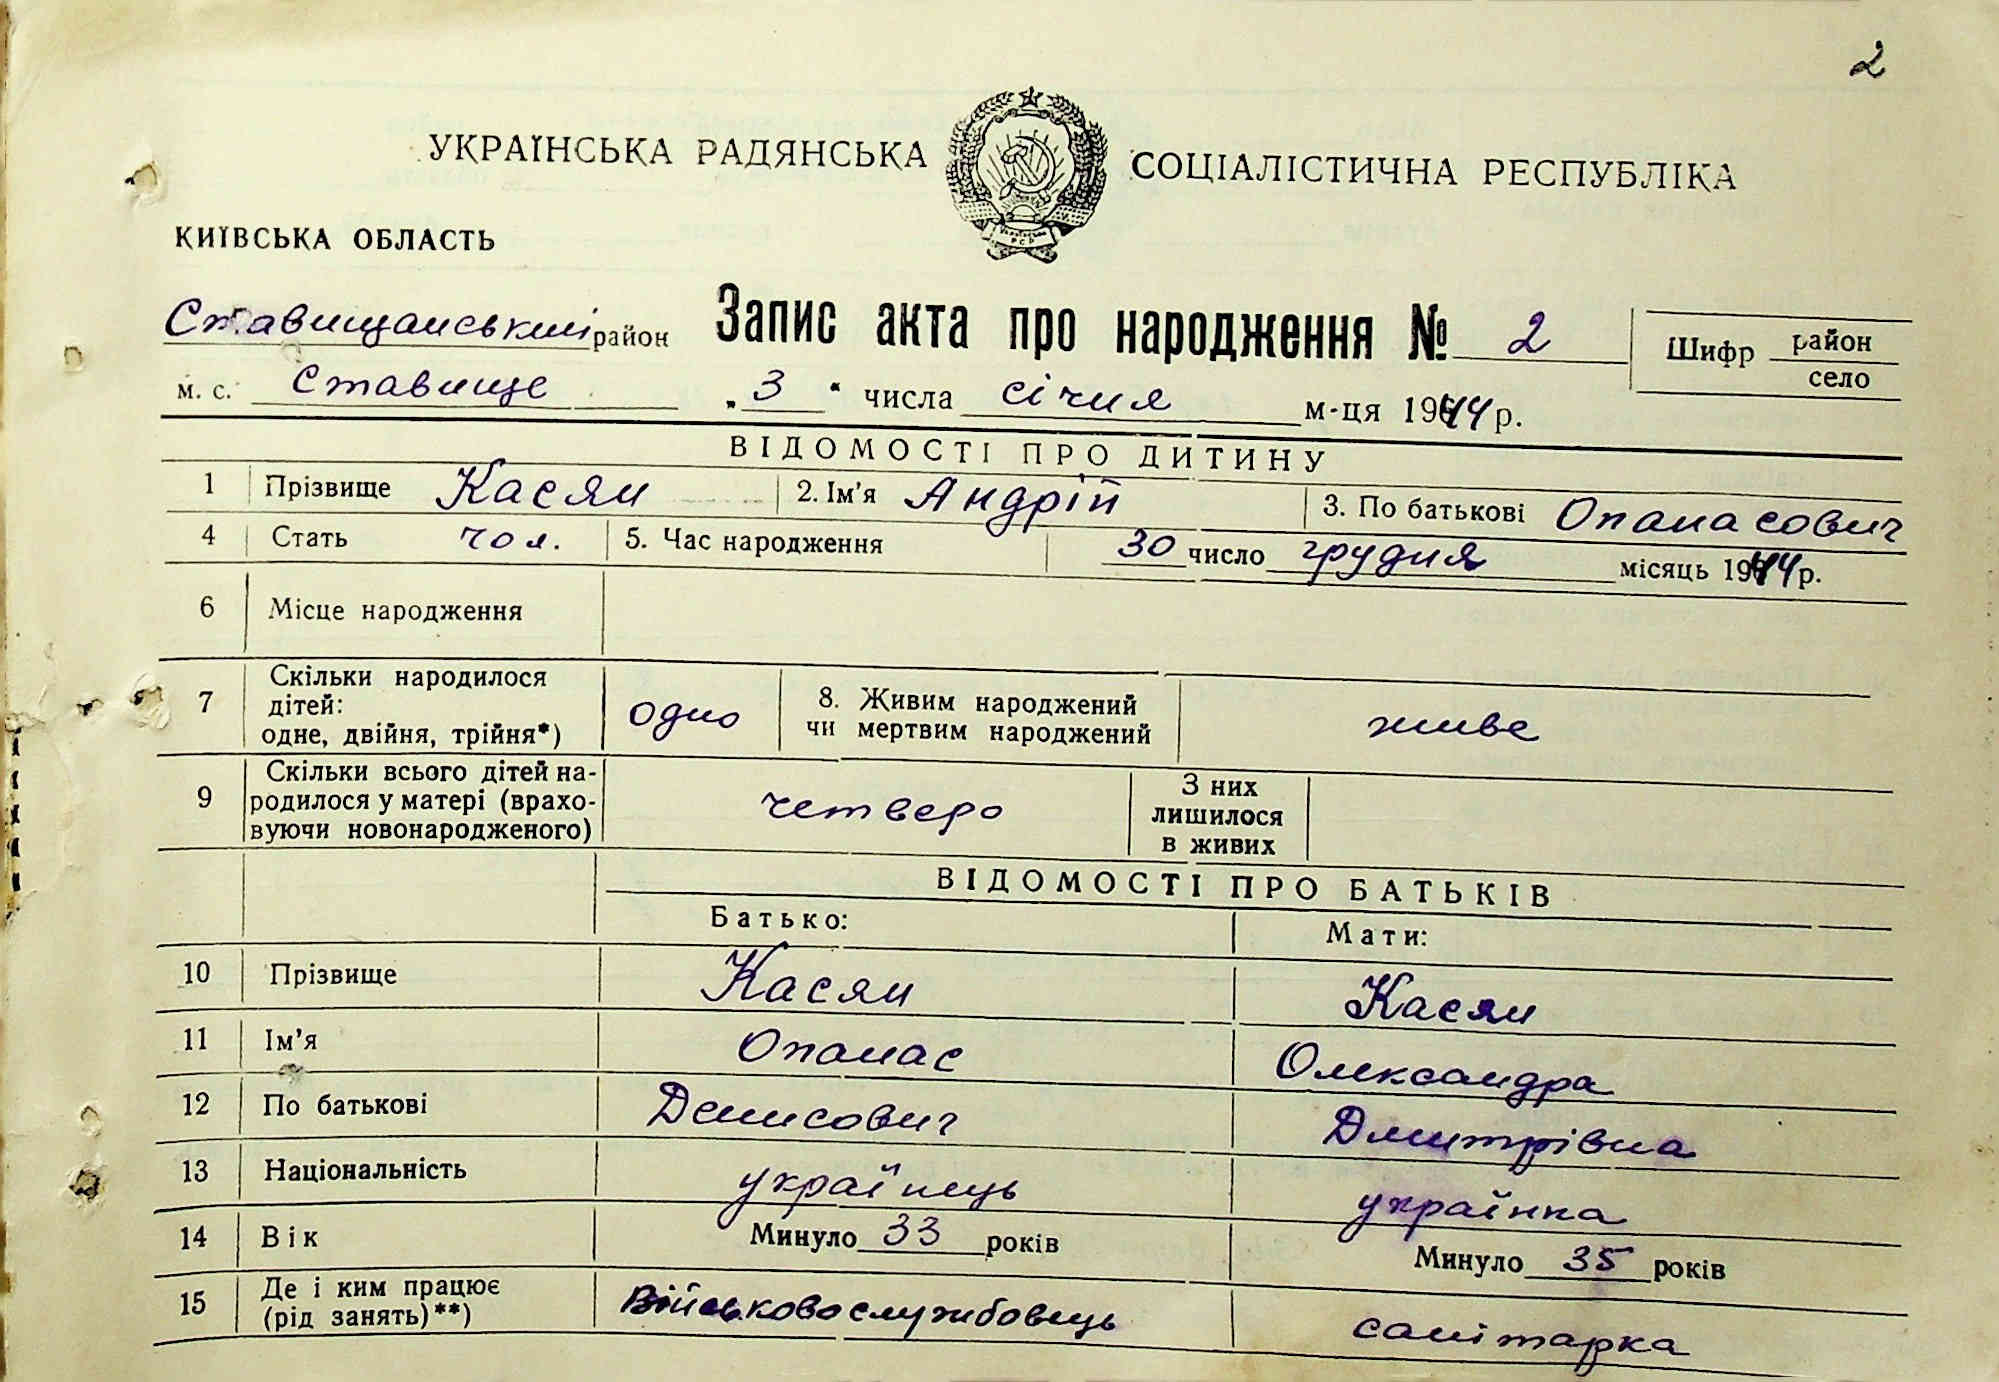 2
УКРАЇНСЬКА РАДЯНСЬКА СОЦІАЛІСТИЧНА РЕСПУБЛІКА
КИЇВСЬКА ОБЛАСТЬ
Ставищанський район Запис акта про народження № 2 Шифр район
село
м. с. Ставище „3“ числа січня м-ця 1944 р.
ВІДОМОСТІ ПРО ДИТИНУ
1 Прізвище Касян 2. Ім'я Андрій 3. По батькові Опанасович
4 Стать чол. 5. Час народження 30 число грудня місяць 1944 р.
6 Місце народження
7 Скільки народилося дітей: одне, двійня, трійня*) одно 8. Живим народжений чи мертвим народжений живе
9 Скільки всього дітей народилося у матері (враховуючи новонародженого) четверо З них лишилося в живих
ВІДОМОСТІ ПРО БАТЬКІВ
Батько: Мати:
10 Прізвище Касян Касян
11 Ім'я Опанас Олександра
12 По батькові Денисович Дмитрівна
13 Національність українець українка
14 Вік Минуло 33 років Минуло 35 років
15 Де і ким працює (рід занять)**) Військовослужбовець санітарка